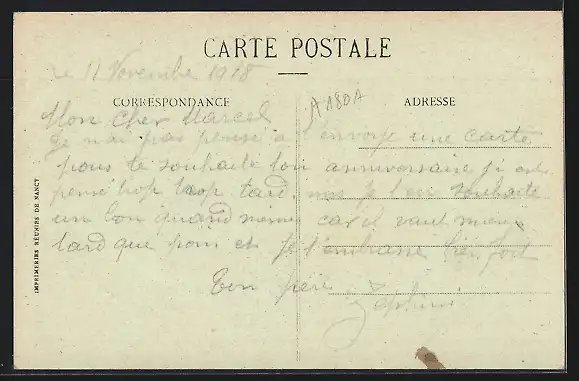 CARTE POSTALE
Le 11 Novembre 1918
CORRESPONDANCE
A180A
ADRESSE
Mon cher Marcel
Je n'ai pas pensé a t'envoyé une carte
pour te souhaité ton anniversaire j'i
pensé trop trop tard, mes je t'en souhaite
un bon quand meme car il vaut mieux
tard que pour et je t'embrasse bien fort
Ton père
IMPRIMERIES RÉUNIES DE NANCY